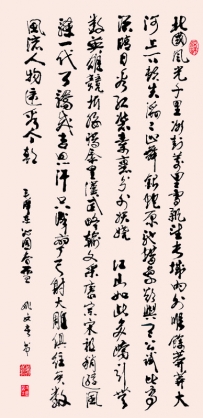 北國風光千里冰封萬里雪飄望長城內外惟餘莽莽大
河上下頓失滔滔山舞銀蛇原馳蠟象欲與天公試比高
須晴日看紅裝素裹分外妖嬈 江山如此多嬌引無
數英雄競折腰惜秦皇漢武略輸文采唐宗宋祖稍遜風
騷一代天驕成吉思汗只識彎弓射大雕俱往矣數
風流人物還看今朝
毛澤東沁園春雪